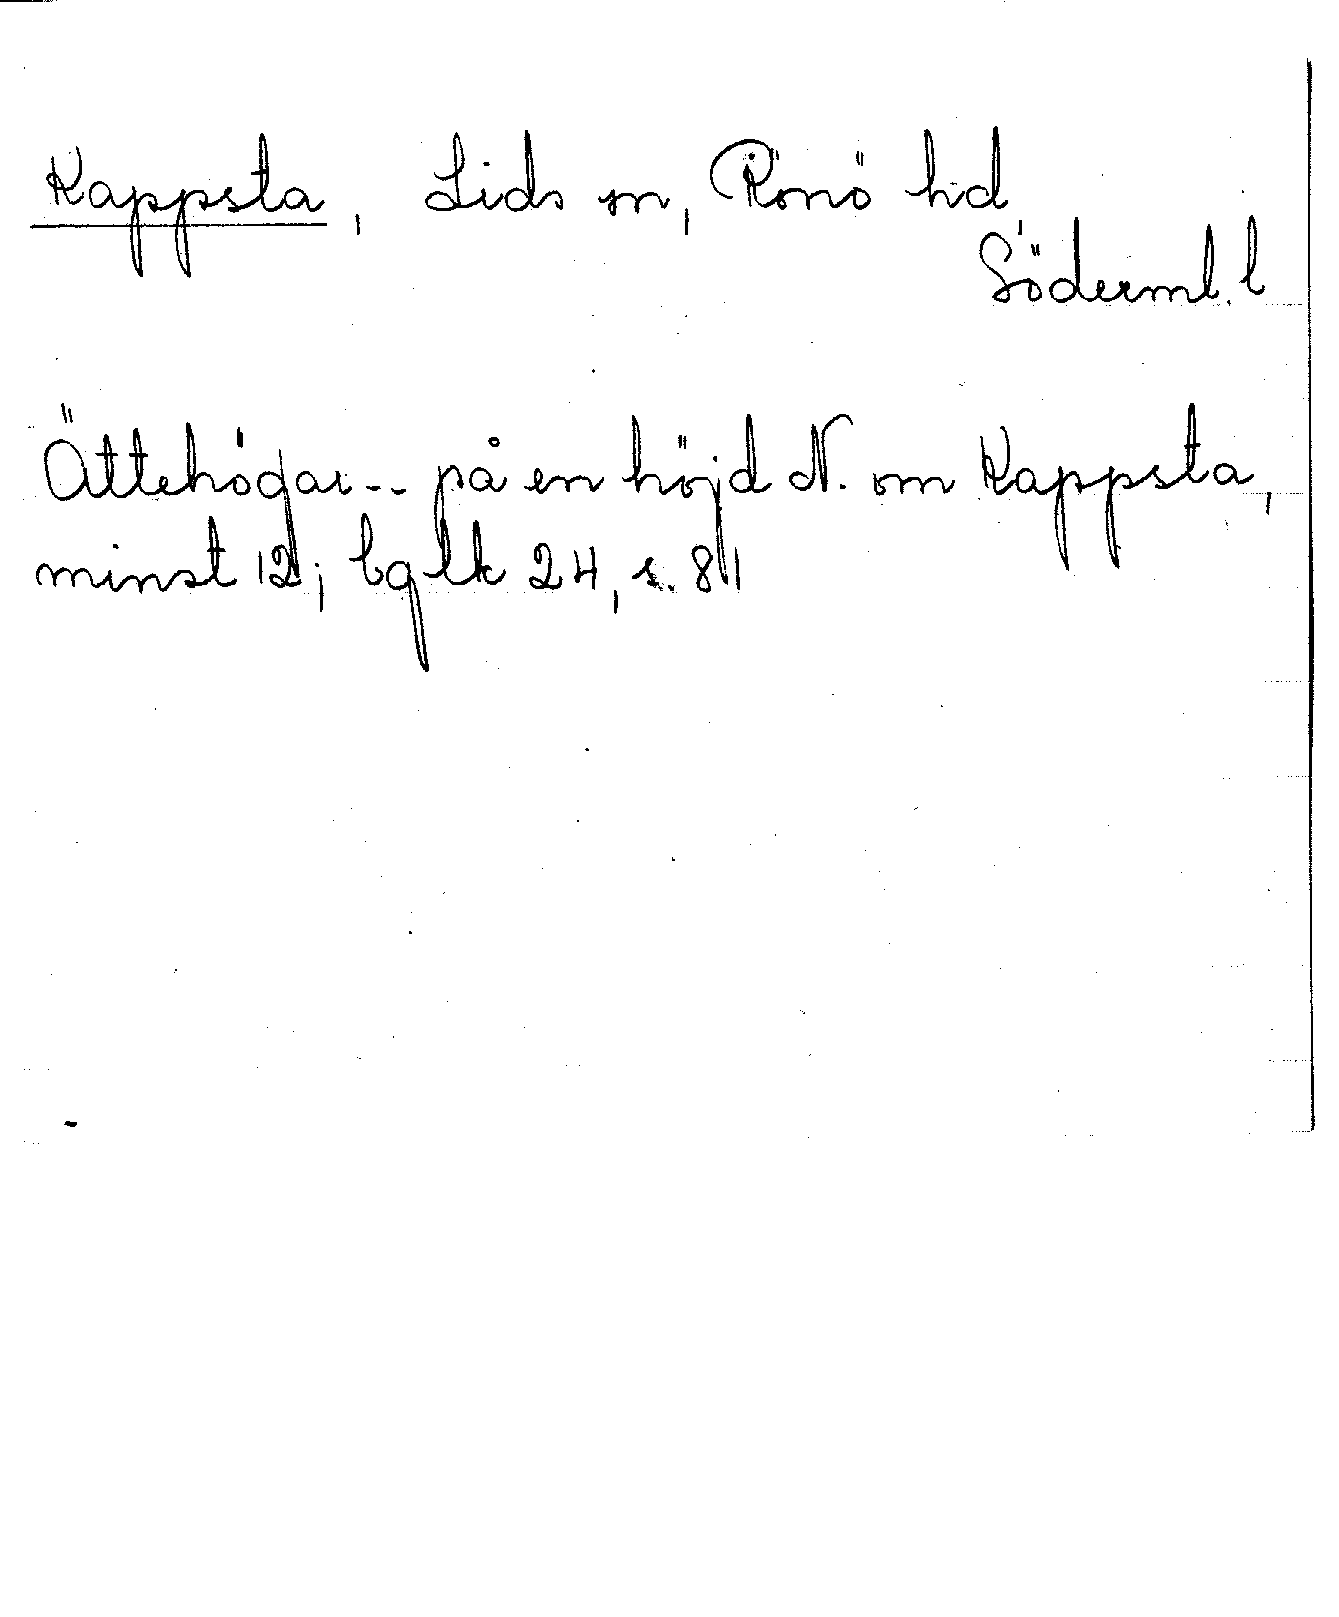 Kappsta, Lids sn, Rönö hd
Söderml. l
Ättehögar -- på en höjd N. om Kappsta,
minst 12; bglk 24, s. 81